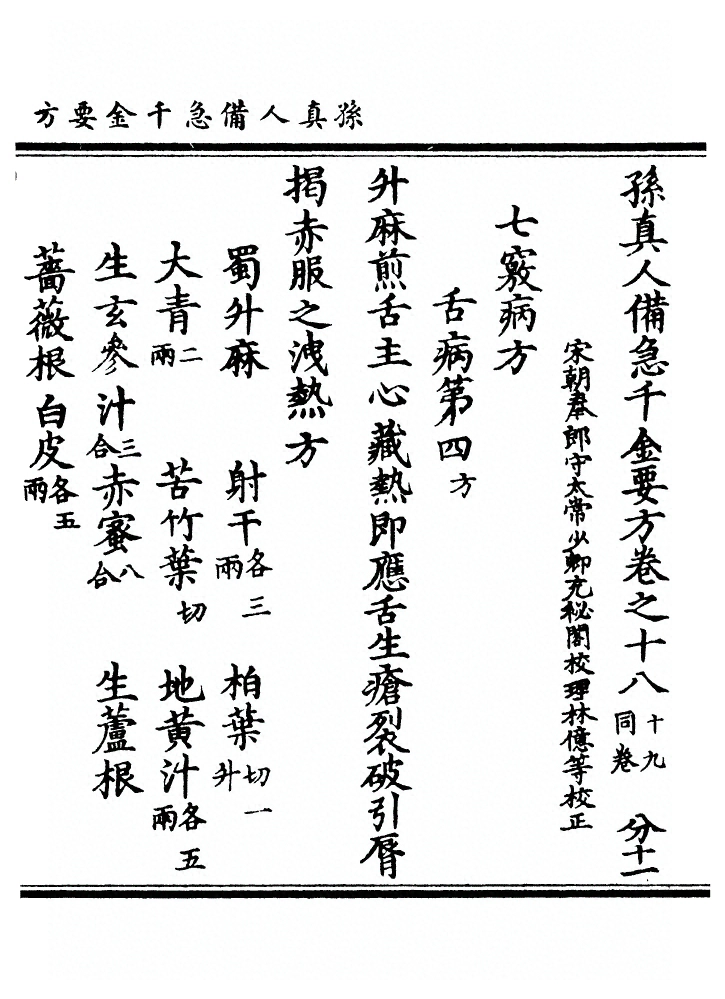 孫真人備急千金要方
孫真人備急千金要方卷之十八十九同卷 分十一
宋朝奉郎守太常少卿充秘閣校理林億等校正
七竅病方
舌病第四方
升麻煎舌主心藏熱即應舌生瘡裂破引脣
揭赤服之洩熱方
蜀升麻 射干各三兩 柏葉切一升
大青二兩 苦竹葉切 地黃汁各五兩
生玄參汁三合 赤蜜八合 生蘆根
薔薇根白皮各五兩